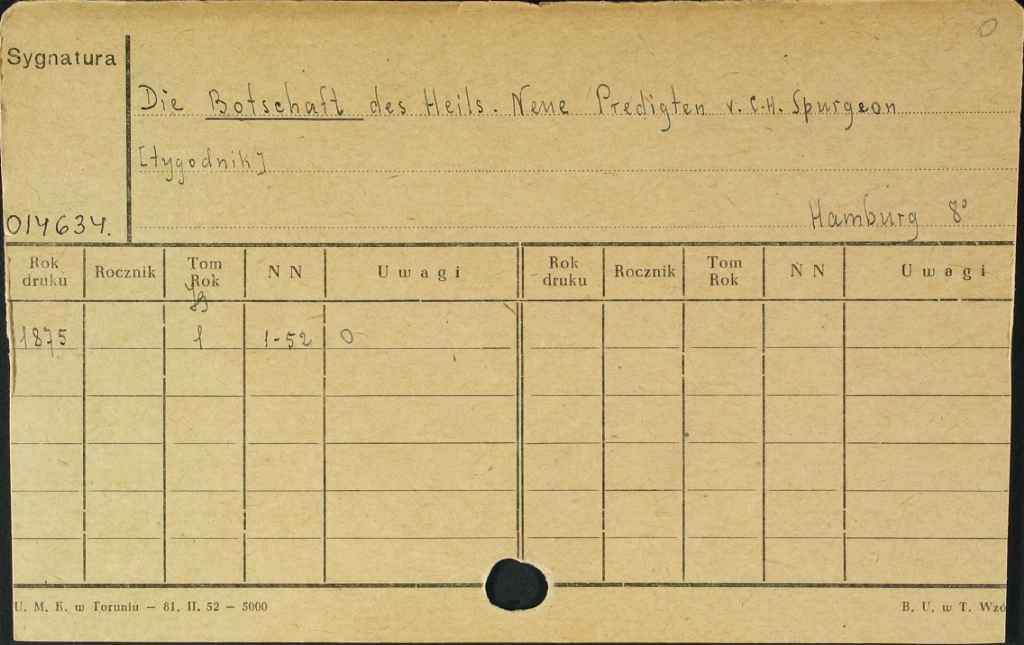 0
Sygnatura
Die Botschaft des Heils. Neue Predigten v. C.H. Spurgeon
[tygodnik]
014634.
Hamburg 8°
Rok druku Rocznik Tom Rok NN Uwagi Rok druku Rocznik Tom Rok NN Uwagi
1875 1 1-52 0
U. M. K. w Toruniu – 61. II. 52 – 5000
B. U. w T. Wzó